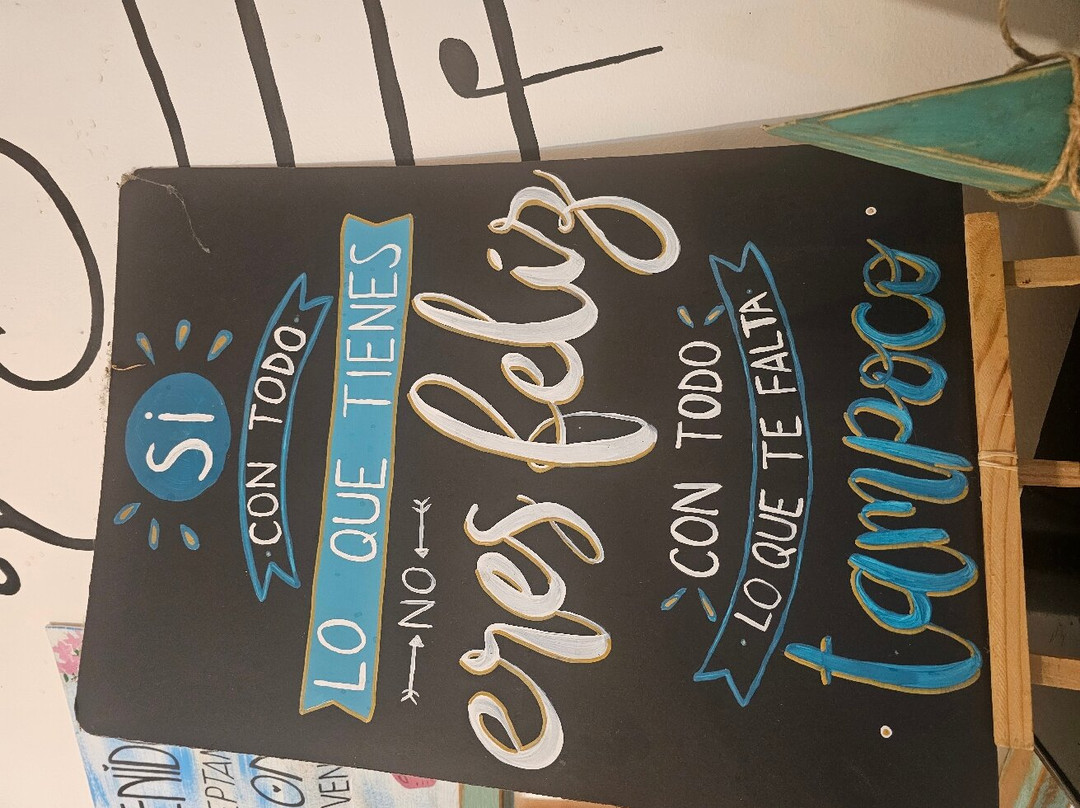 Si
CON TODO
LO QUE TIENES
NO
eres feliz
CON TODO
LO QUE TE FALTA
tampoco